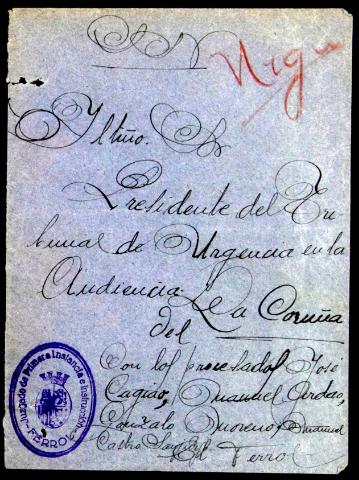 S N
Urg
Iltmo. Sr
Presidente del Tri-
bunal de Urgencia en la
Audiencia. La Coruña
del
Con los procesados José
Cagiao, Manuel Ardao,
Gonzalo Moreno, Manuel
Castro
El Ferrol
Juzgado de Primera Instancia e Instrucción
- FERROL -